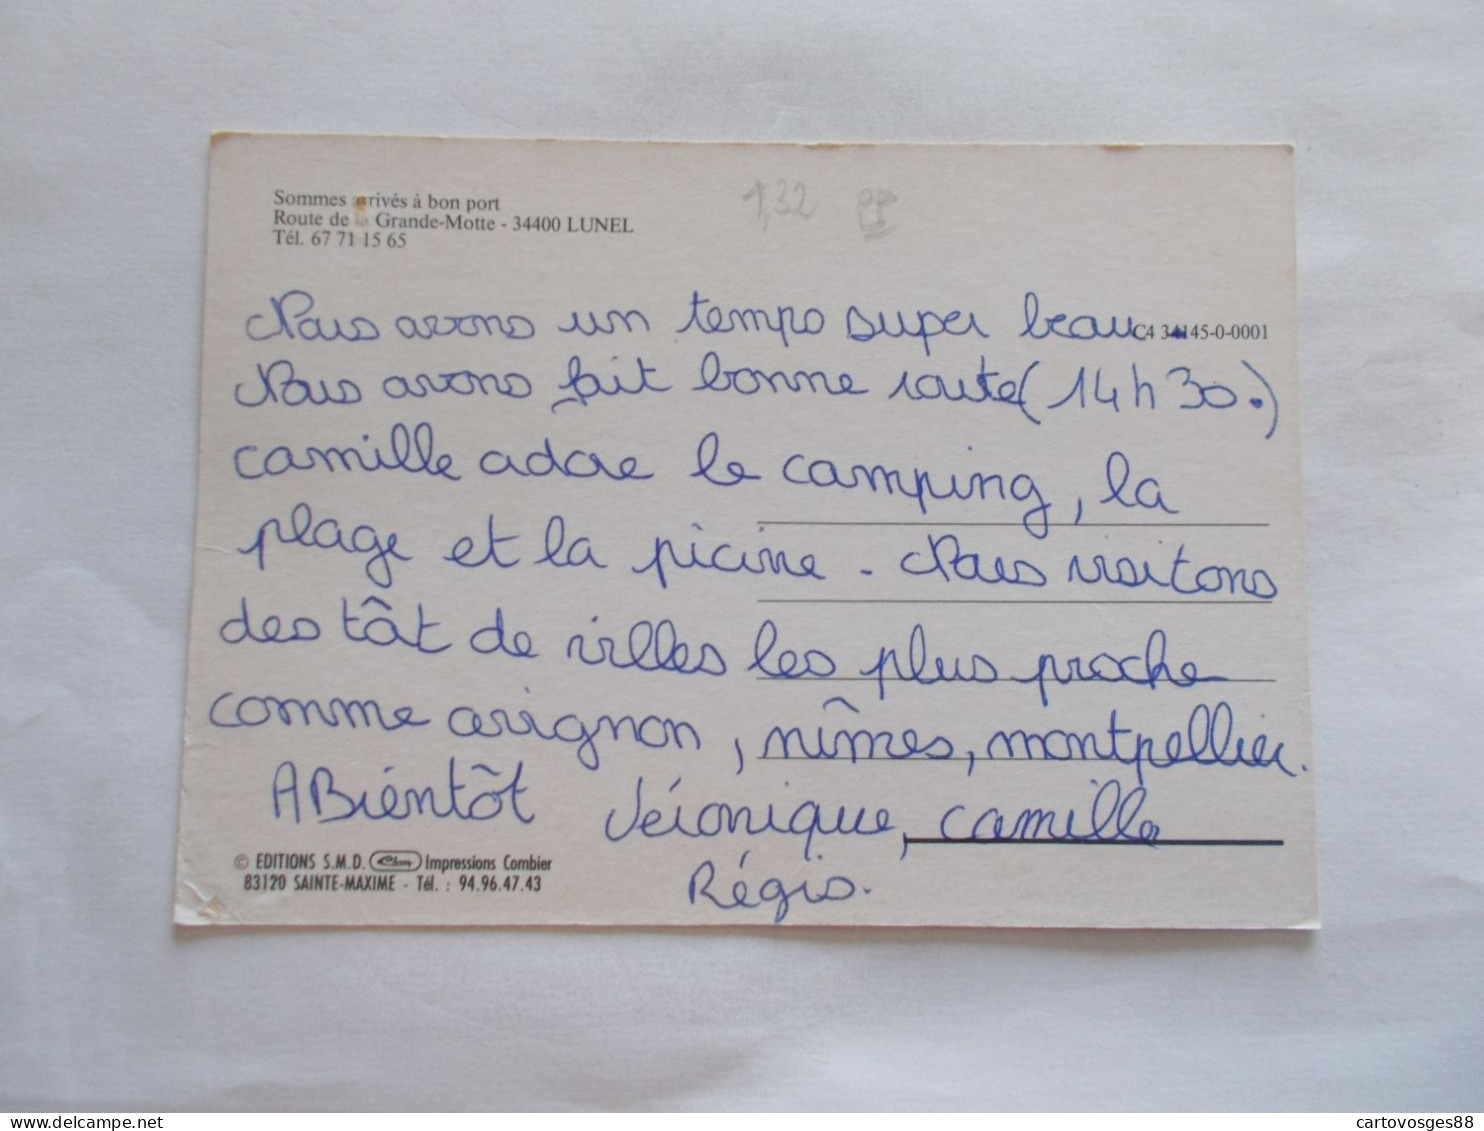 Sommes arrivés à bon port
Route de la Grande-Motte - 34400 LUNEL
Tél. 67 71 15 65
1,32 PP
Nous avons un temps super beau.
C4 34145-0-0001
Nous avons fait bonne route (14h30.)
camille adore le camping, la
plage et la picine. Nous visitons
des tât de villes les plus proche
comme avignon, nîmes, montpellier.
A Bientôt Véronique, camille
Régis.
© EDITIONS S.M.D. Impressions Combier
83120 SAINTE-MAXIME - Tél. : 94.96.47.43
cartovosges88